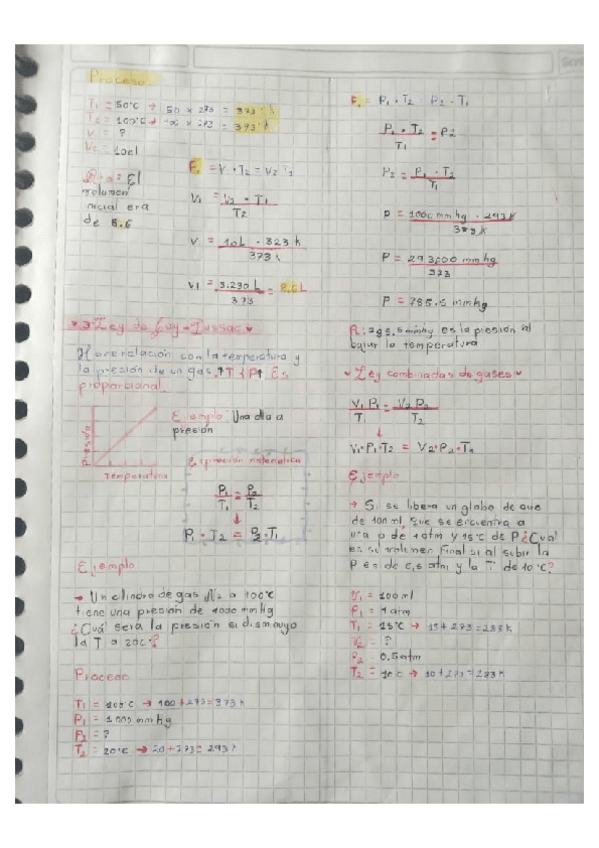 Proceso.
T1 = 50°C → 50 + 273 = 323 K
T2 = 100°C → 100 + 273 = 373 K
V = ?
V2 = 10L
R: El
volumen
inicial era
de 8.6
F. = V · T2 = V2 T1
V1 = V2 · T1
T2
V = 10L · 323 K
373 K
V1 = 3.230 L = 8.6L
373
Ley de Guy-Lussac ♥
relación con la temperatura y
la presión de un gas. ↑T P↑ Es
proporcional
Presión
Temperatura
Ejemplo: Una olla a
presión
Expresión matemática
P1 = P2
T1 T2
↓
P1 · T2 = P2 · T1
Ejemplo
→ Un cilindro de gas N2 a 100°C
tiene una presión de 1000 mmhg
¿Cuál será la presión si dismuyo
la T a 20C°?
Proceso
T1 = 100°C → 100 + 273 = 373 K
P1 = 1000 mmhg
P2 = ?
T2 = 20°C → 20 + 273 = 293 K
F. = P1 · T2 = P2 · T1
P1 · T2 = P2
T1
P2 = P1 · T2
T1
P = 1000 mmhg · 293 K
373 K
P = 293,000 mmhg
373
P = 785.5 mmhg
R: 785.5 mmhg es la presión al
bajar la temperatura
♥ Ley combinadas de gases ♥
V1 P1 = V2 P2
T1 T2
↓
V1·P1·T2 = V2·P2·T1
Ejemplo
→ Si se libera un globo de
de 100 ml, que se encuentra a
una p de 1 atm y 15°C de P ¿Cual
es su volumen final si al subir la
P es de 0,5 atm y la T de 10°C?
V1 = 100 ml
P1 = 1 atm
T1 = 15°C → 15 + 273 = 288 K
V2 = ?
P2 = 0.5 atm
T2 = 10°C → 10 + 273 = 283 K